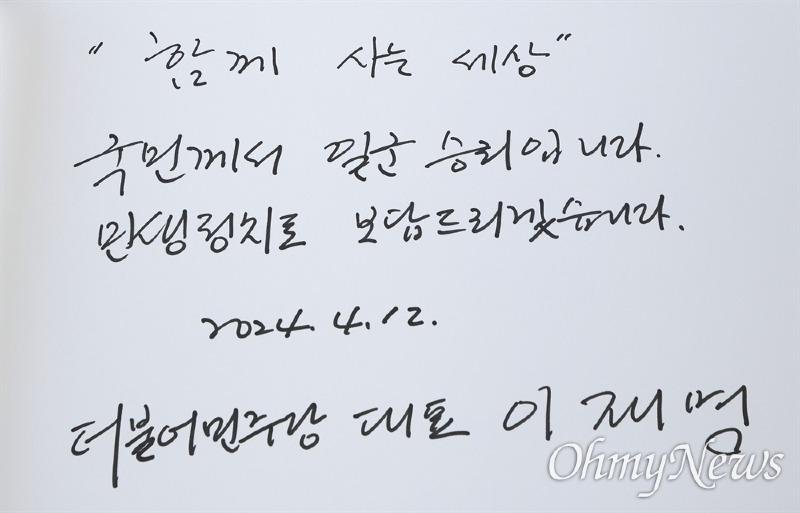 "함께 사는 세상"
국민께서 일군 승리입니다.
민생정치로 보답드리겠습니다.
2024. 4. 12.
더불어민주당 대표 이재명
OhmyNews